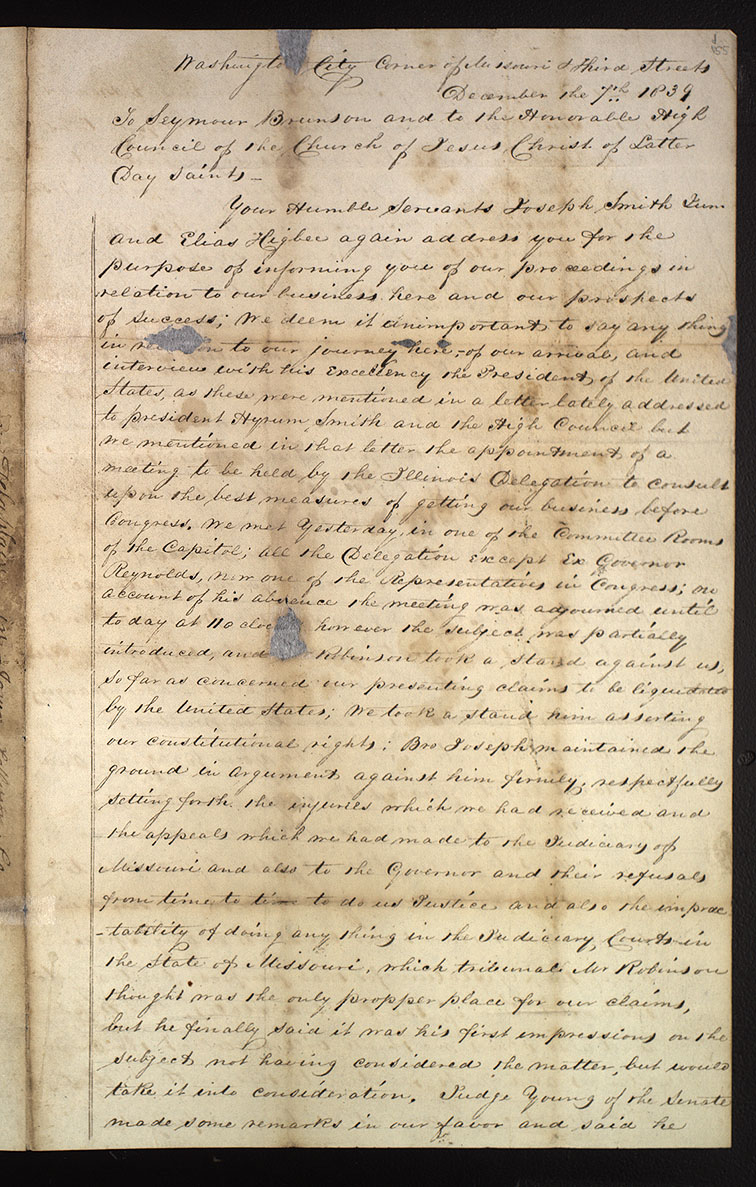 155
Washington City Corner of Missouri & third Streets
December the 7th 1839
To Seymour Brunson and to the Honorable High
Council of the Church of Jesus Christ of Latter
Day Saints—
Your Humble Servants Joseph Smith Jun
and Elias Higbee again address you for the
purpose of informing you of our proceedings in
relation to our business here and our prospects
of success; We deem it unimportant to say any thing
in to our journey here, of our arrival, and
interview with his Excellency the President of the United
States, as these were mentioned in a letter lately addressed
to president Hyrum Smith and the High Council but
we mentioned in that letter the appointment of a
meeting to be held by the Illinois Delegation to consult
upon the best measures of getting our business before
Congress. We met Yesterday, in one of the Committee Rooms
of the Capitol; all the Delegation except Ex Governor
Reynolds, now one of the Representatives in Congress; on
account of his absence the meeting was adjourned until
to day at however the subject was partially
introduced, and Robinson took a stand against us,
so far as concerned our presenting claims to be liquidated
by the United States; We took a stand him asserting
our constitutional rights; Bro Joseph maintained the
ground in argument against him firmly, respectfully
setting forth the injuries which we had received and
the appeals which we had made to the Judiciary of
Missouri and also to the Governor and their refusals
from time to time to do us Justice and also the imprac
-tability of doing any thing in the Judiciary Courts in
the State of Missouri, which tribunal Mr Robinson
thought was the only propper place for our claims,
but he finally said it was his first impressions on the
subject not having considered the matter, but would
take it into consideration. Judge Young of the Senate
made some remarks in our favor and said he